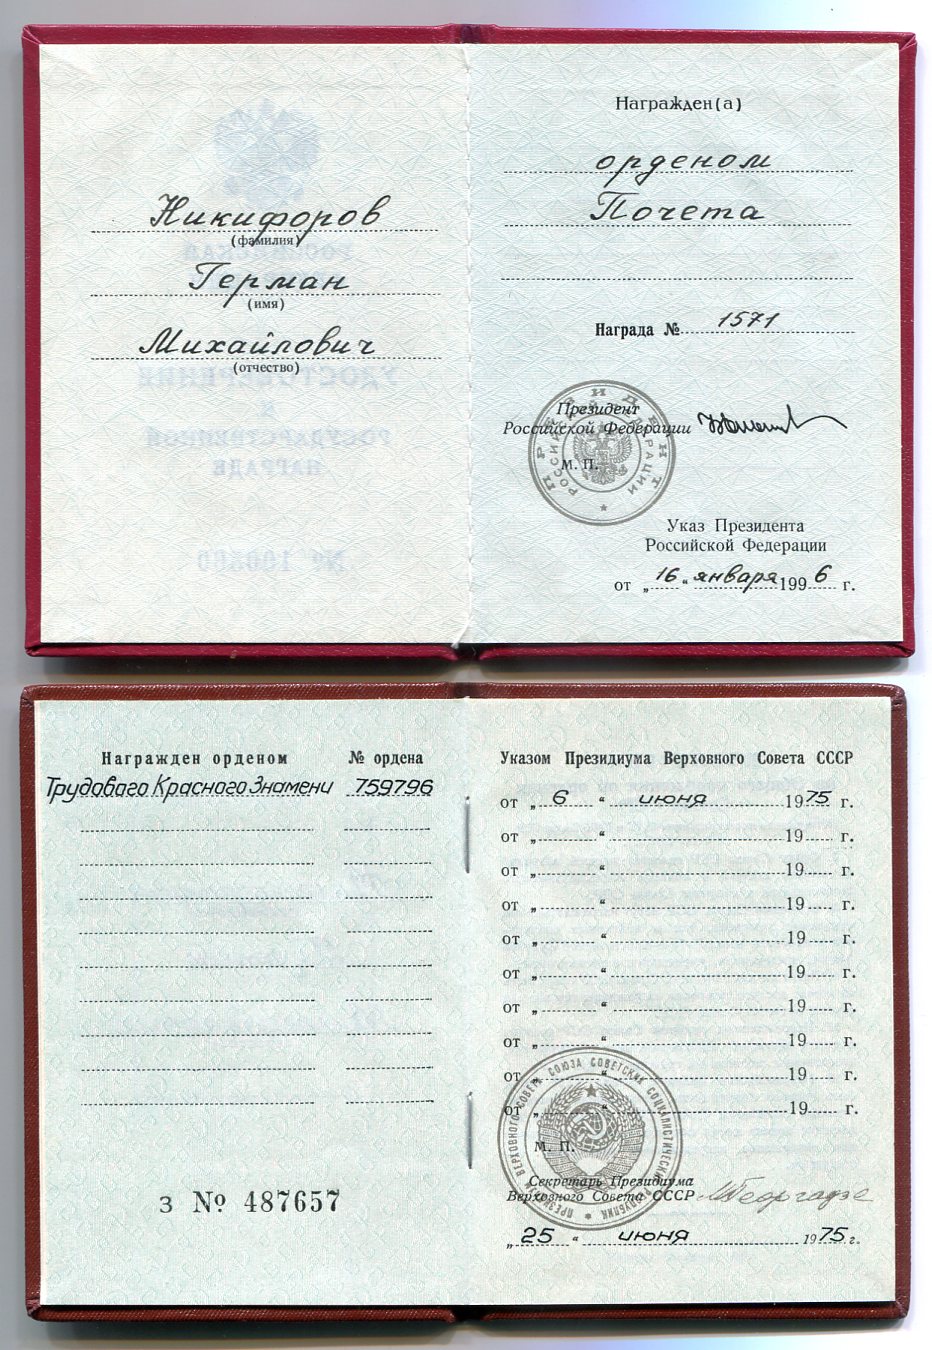 Никифоров
(фамилия)
Герман
(имя)
Михайлович
(отчество)
Награжден(а)
орденом
Почета
Награда № 1571
Президент
Российской Федерации
М. П.
ПРЕЗИДЕНТ
РОССИЙСКОЙ ФЕДЕРАЦИИ
Указ Президента
Российской Федерации
от „16“ января 1996 г.
Награжден орденом № ордена
Трудового Красного Знамени 759796
З № 487657
Указом Президиума Верховного Совета СССР
от „6“ июня 1975 г.
от „ “ 19 г.
от „ “ 19 г.
от „ “ 19 г.
от „ “ 19 г.
от „ “ 19 г.
от „ “ 19 г.
от „ “ 19 г.
от „ “ 19 г.
от „ “ 19 г.
от „ “ 19 г.
ПРЕЗИДИУМ ВЕРХОВНОГО СОВЕТА СОЮЗА СОВЕТСКИХ СОЦИАЛИСТИЧЕСКИХ РЕСПУБЛИК
М. П.
Секретарь Президиума
Верховного Совета СССР МГеоргадзе
„25“ июня 1975 г.